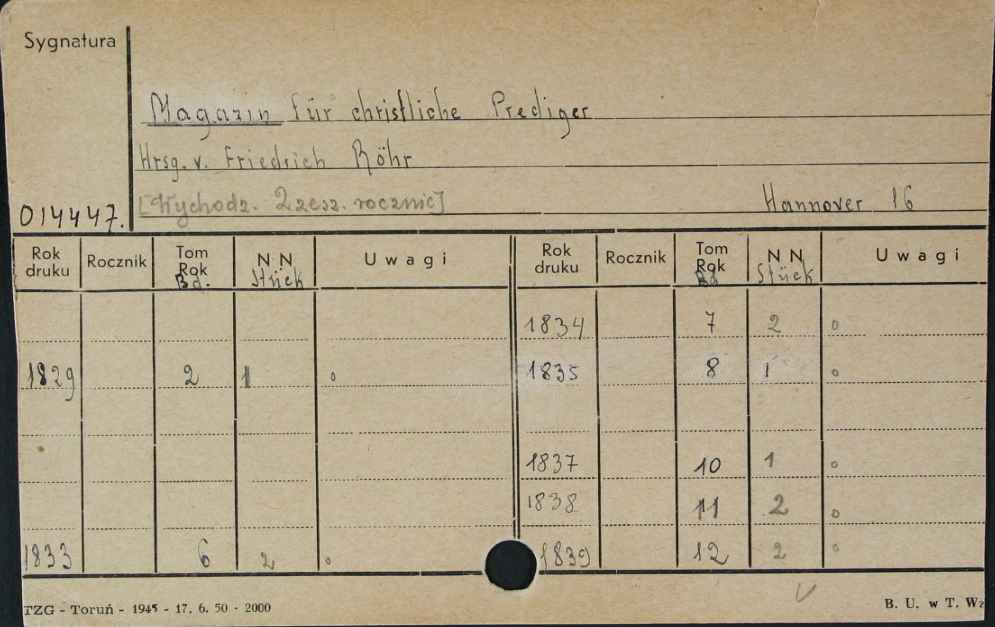 Sygnatura
Magazin für christliche Prediger
Hrsg. v. Friedrich Röhr
[Wychodz. 2 zesz. rocznie]
Hannover 16
014447.
Rok druku Rocznik Tom Rok Bd. N N Stück Uwagi Rok druku Rocznik Tom Rok Bd N N Stück Uwagi
1834 7 2 °
1829 2 1 ° 1835 8 1 °
1837 10 1 °
1838 11 2 °
1833 6 2 ° 1839 12 2 °
TZG - Toruń - 1945 - 17. 6. 50 - 2000
B. U. w T. Wz